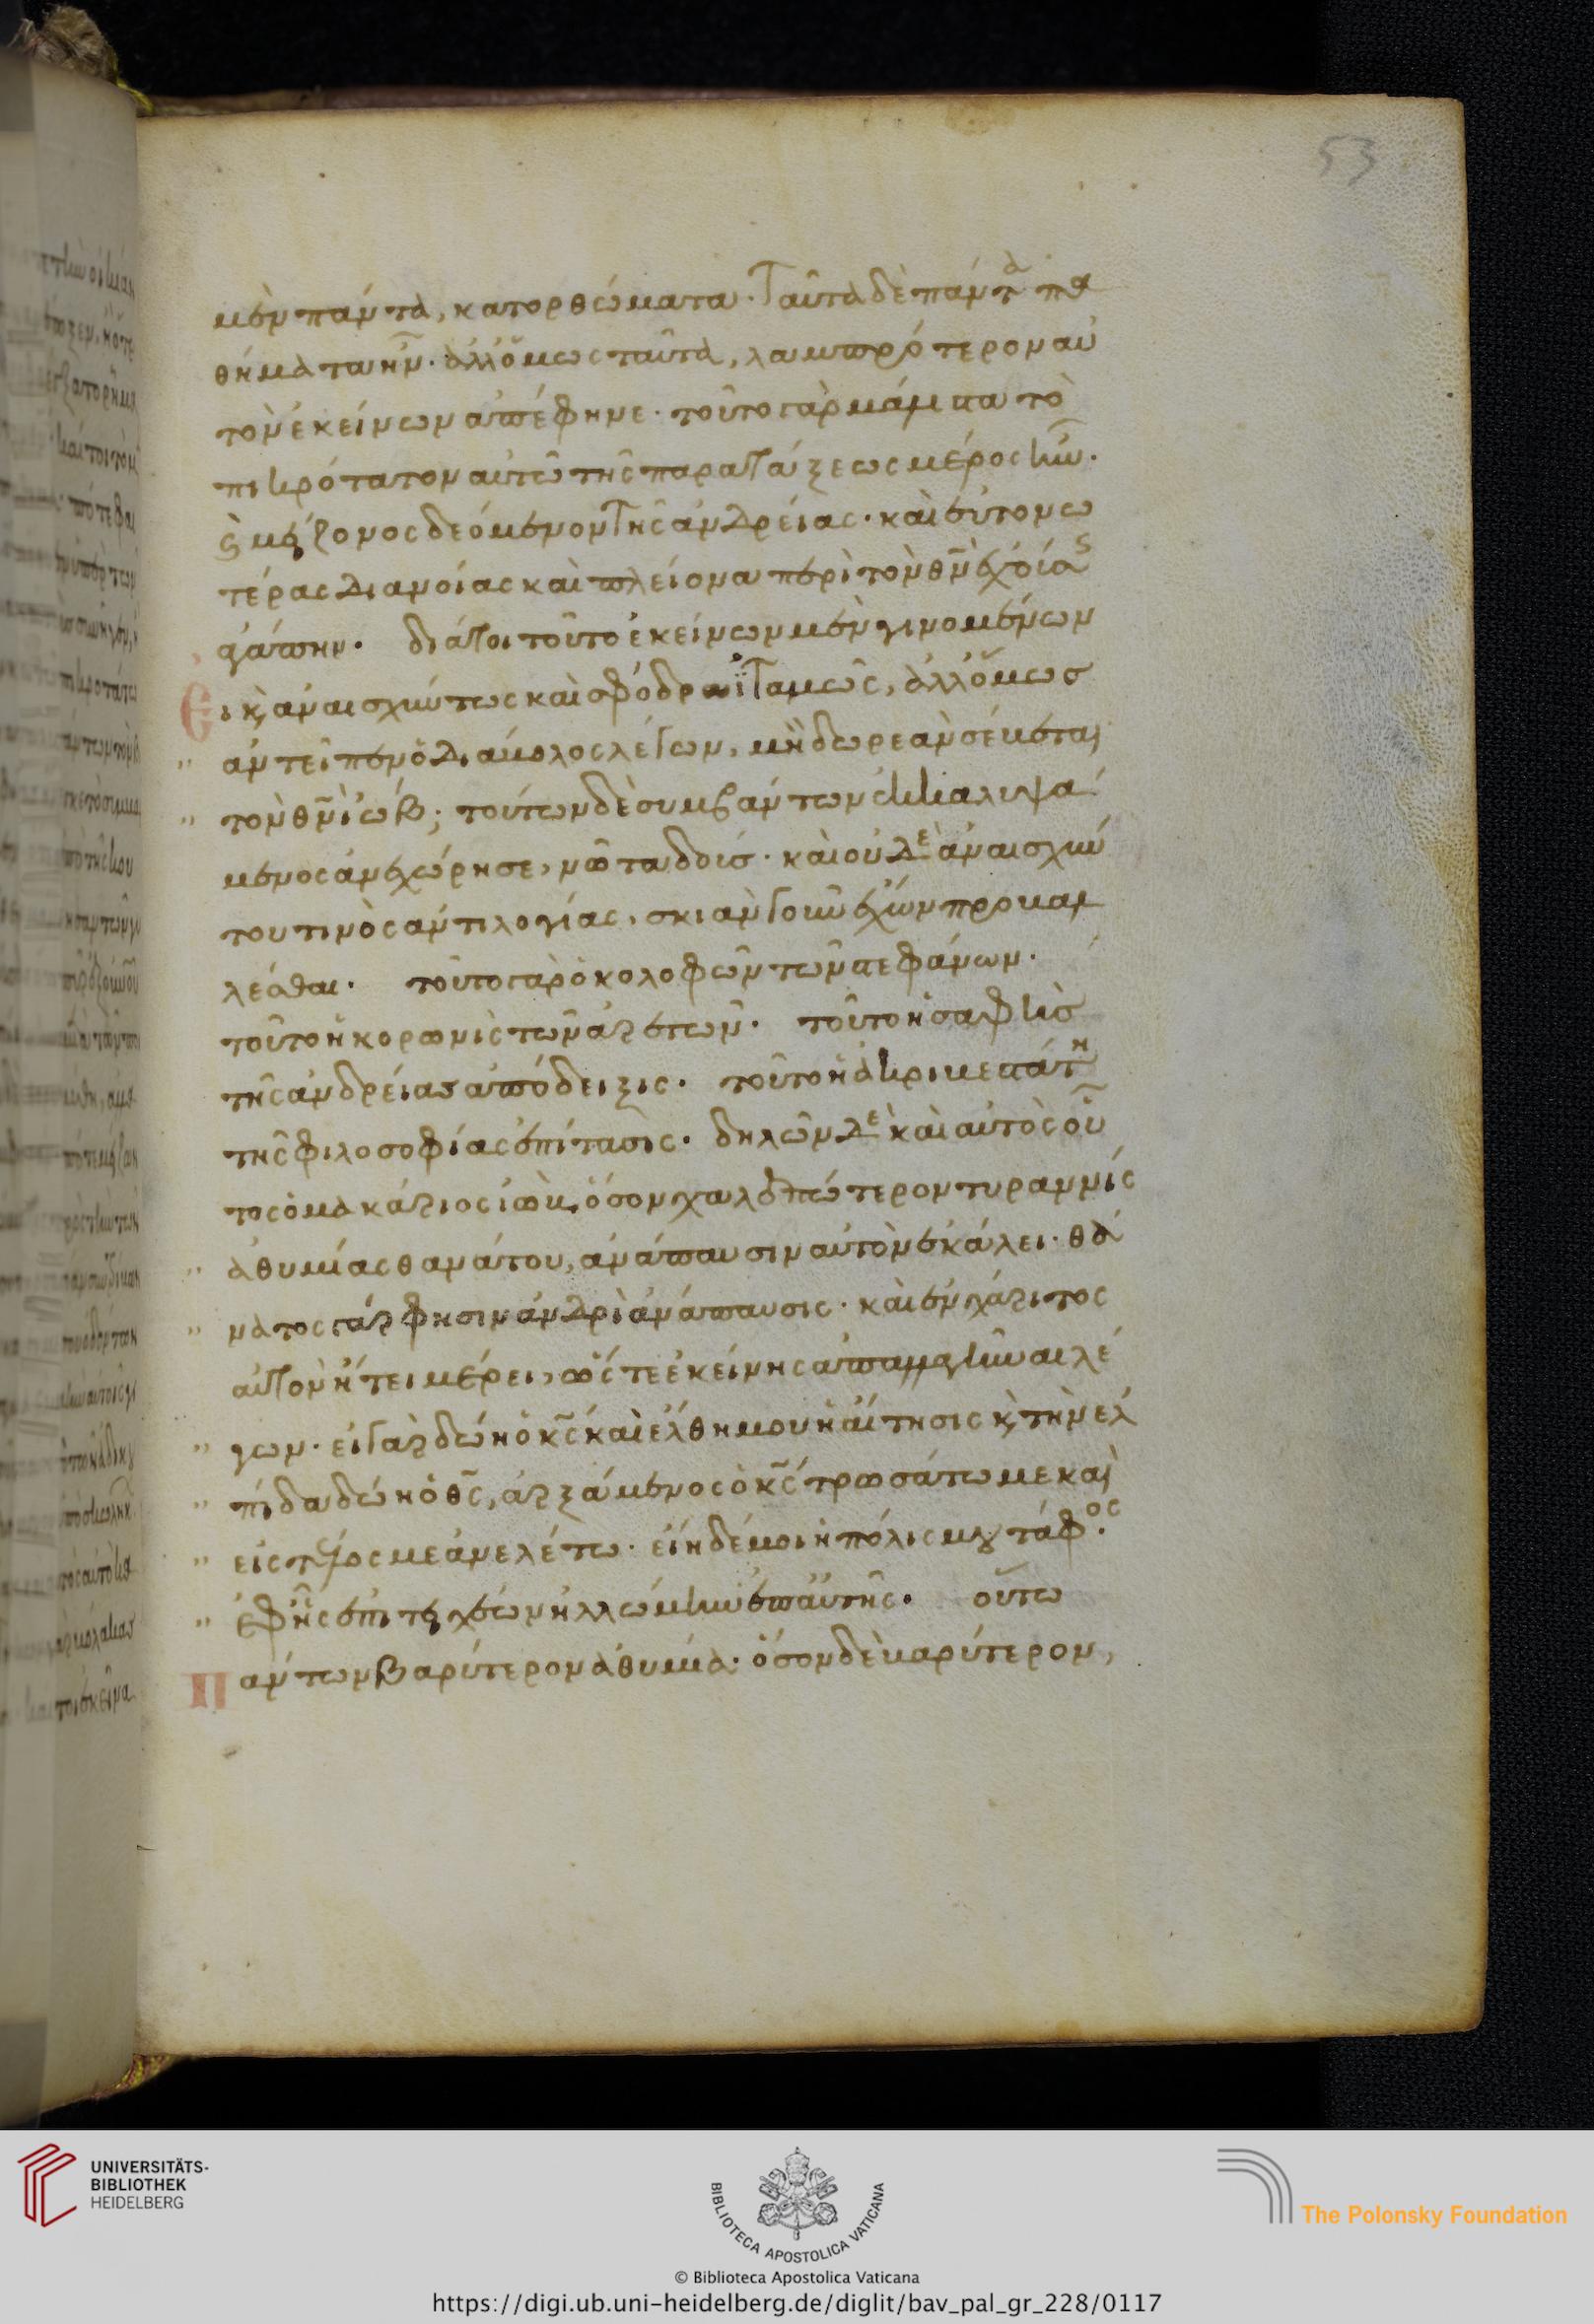 53
μὲν πάντα, κατορθώματα. Ταῦτα δὲ πάντα πα
θήματα ἦν. ἀλλ' ὅμως ταῦτα, λαμπρότερον αὐ
τὸν ἐκείνων ἀπέφηνε. τοῦτο γὰρ μάλιστα τὸ
πικρότατον αὐτῶ τῆς παρατάξεως μέρος ἦν.
καὶ μείζονος δεόμενον τῆς ἀνδρείας. καὶ εὐτονω
τέρας διανοίας καὶ πλείονα περὶ τὸν θν ἐχούσας
ἀγάπην. διά τοι τοῦτο ἐκείνων μὲν γινομένων
Ει κ ἀναισχύντως καὶ σφόδρα ἰταμῶς, ἀλλ' ὅμως
ἀντεῖπεν ὁ διάβολος λέγων, μὴ δωρεὰν σέβεται
τὸν θν ἰώβ; τούτων δὲ συμβάντων ἐγκαλυψά
μενος ἀνεχώρησε, νῶτα δοὺς. καὶ οὐδὲ ἀναισχύν
του τινὸς ἀντιλογίας, σκιὰν γοῦν ἔχων προβαλ
λέσθαι. τοῦτο γὰρ ὁ κολοφὼν τῶν στεφάνων.
τοῦτο ἡ κορωνὶς τῶν ἀρετῶν. τοῦτο ἡ σαφὴς
τῆς ἀνδρείας ἀπόδειξις. τοῦτο ἡ ἀκριβεστάτη
τῆς φιλοσοφίας ἐπίτασις. δηλῶν δὲ καὶ αὐτὸς οὗ
τος ὁ μακάριος ἰὼβ, ὅσον χαλεπώτερον τυραννίς
ἀθυμίας θανάτου, ἀνάπαυσιν αὐτὸν ἐκάλει. θά
νατος γάρ φησιν ἀνδρὶ ἀνάπαυσις. καὶ ἐν χάριτος
αὐτὸν ἤτει μέρει, ὥστε ἐκείνης ἀπαλλαγῆναι λέ
γων. εἰ γὰρ δώη ὁ κς καὶ ἔλθη μου ἡ αἴτησις κ τὴν ἐλ
πίδα δώη ὁ θς, ἀρξάμενος ὁ κς τρωσάτω με καὶ
εἰς τέλος με ἀνελέτω. εἴη δέ μοι ἡ πόλις μου τάφος.
ἐφ' ἧς ἐπὶ τειχέων ἡλλόμην ἐπ' αὐτῆς. οὕτω
Παντων βαρύτερον ἀθυμία. ὅσον δὲ βαρύτερον,
UNIVERSITÄTS-
BIBLIOTHEK
HEIDELBERG
BIBLIOTECA APOSTOLICA VATICANA
© Biblioteca Apostolica Vaticana
The Polonsky Foundation
https://digi.ub.uni-heidelberg.de/diglit/bav_pal_gr_228/0117